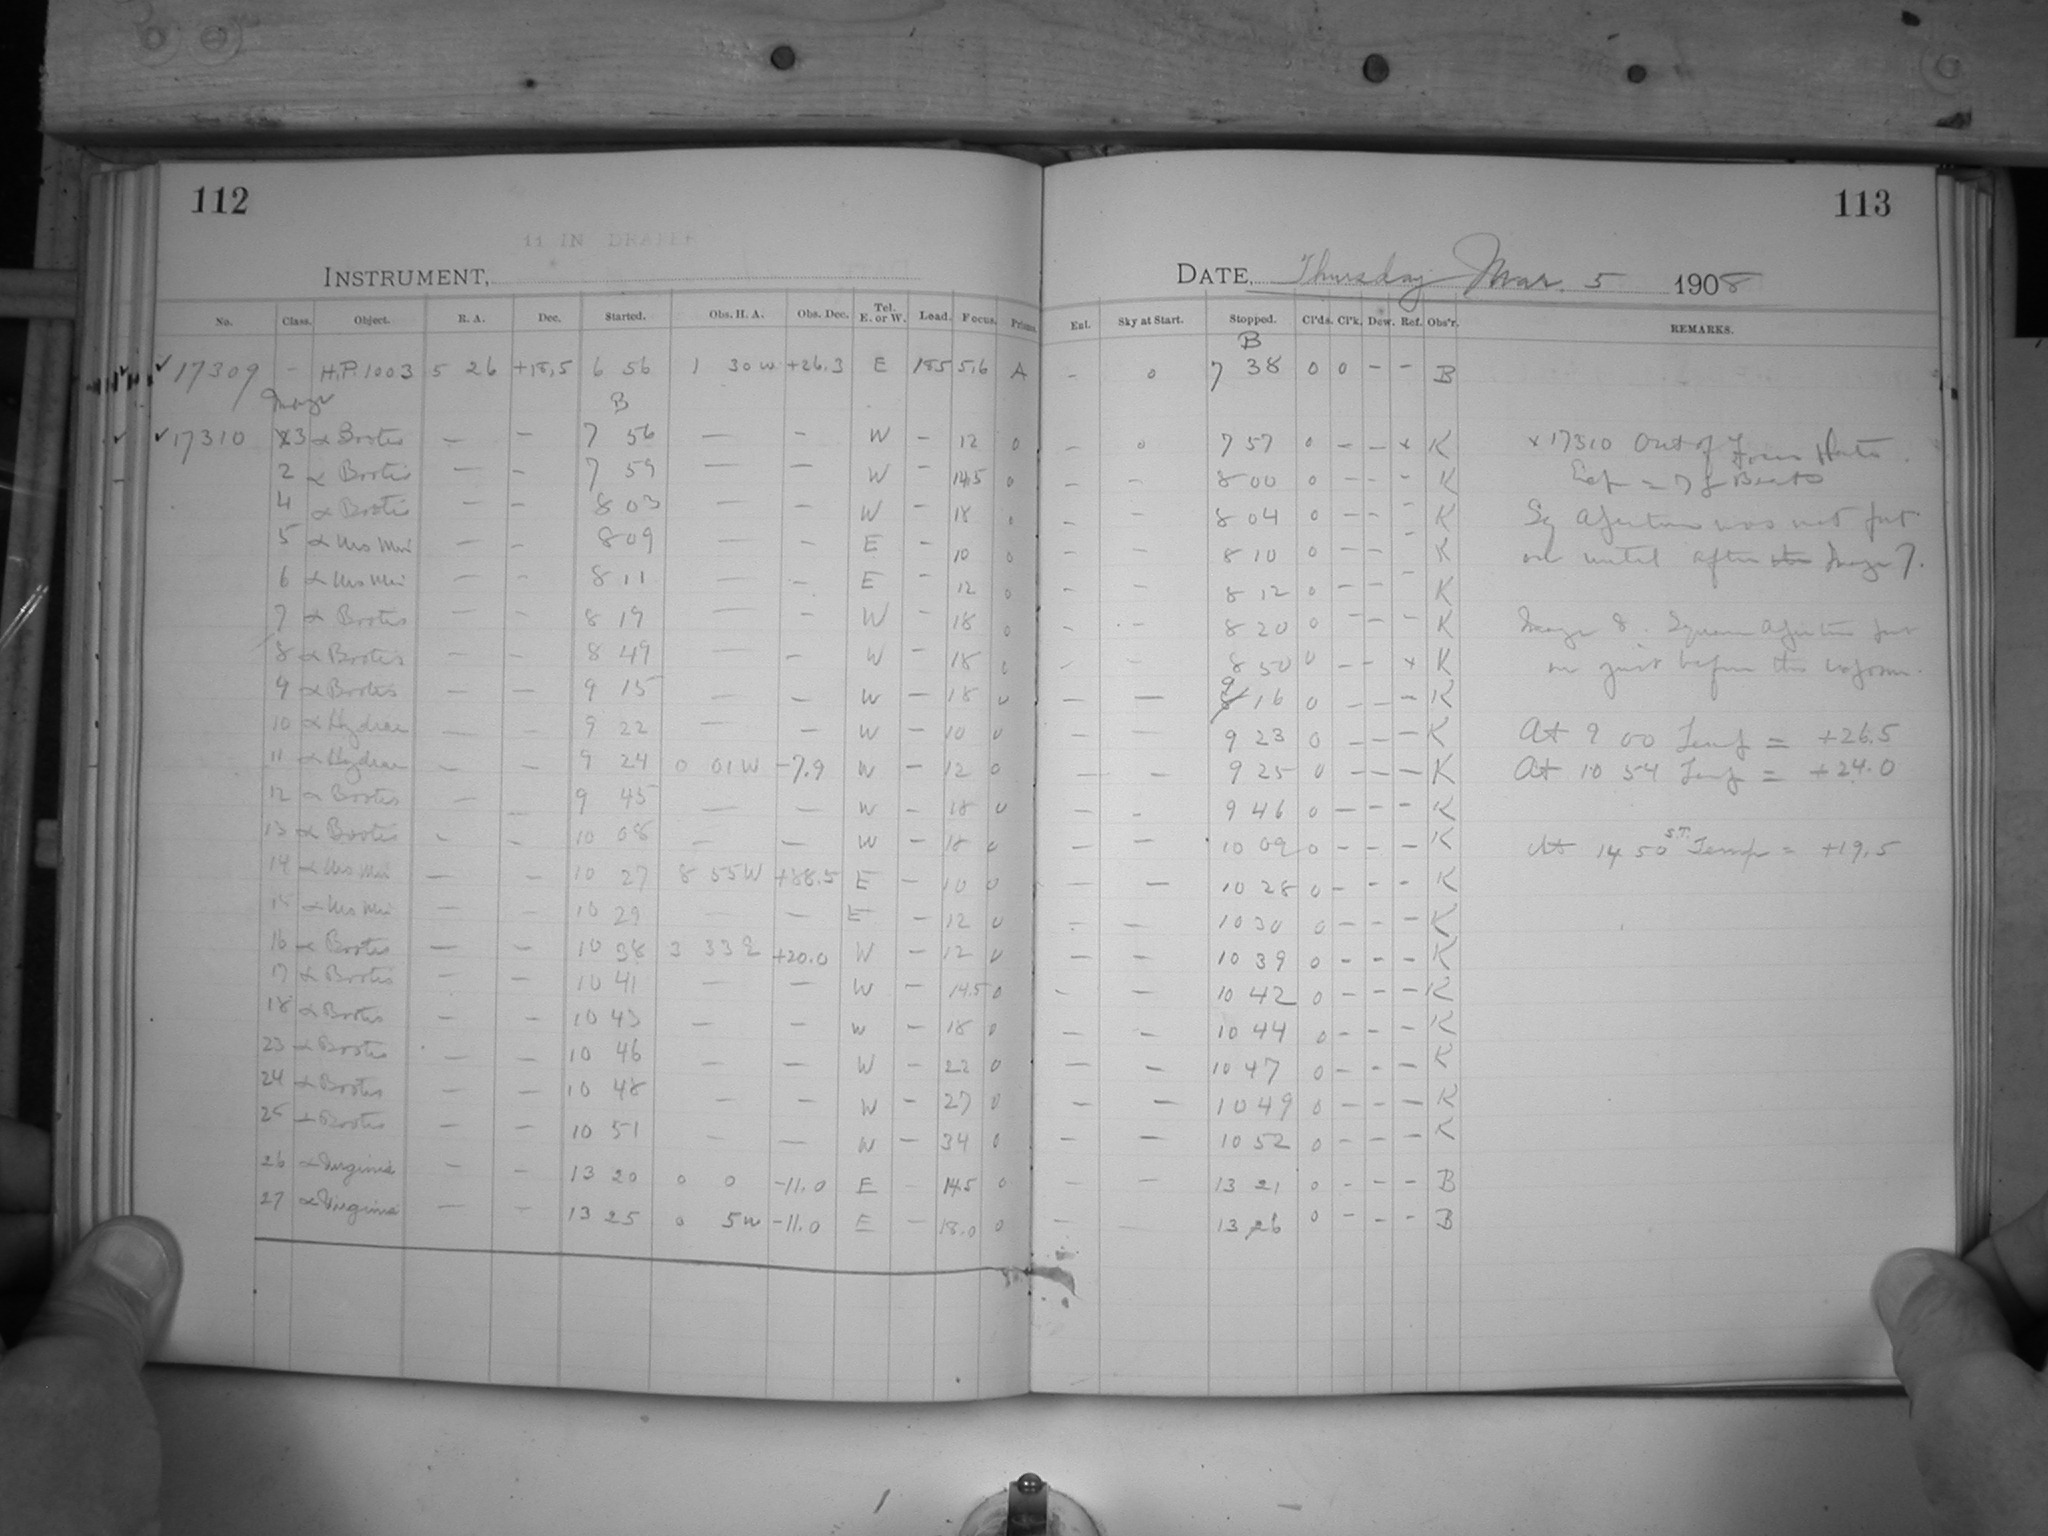 112
11 IN DRAPER
INSTRUMENT,
No. Class. Object. R. A. Dec. Started. Obs. H. A. Obs. Dec. Tel. E. or W. Load. Focus. Prisms.
17309 - H.P. 1003 5 26 +18,5 6 56 1 30 W +26.3 E 185 5,6 A
Image B
17310 3 α Bootis — — 7 56 — — W — 12 0
2 α Bootis — — 7 59 — — W — 14.5 0
4 α Bootis — — 8 03 — — W — 18 0
5 α Urs Min — — 8 09 — — E — 10 0
6 α Urs Min — — 8 11 — — E — 12 0
7 α Bootis — — 8 19 — — W — 18 0
8 α Bootis — — 8 49 — — W — 18 0
9 α Bootis — — 9 15 — — W — 18 0
10 α Hydrae — — 9 22 — — W — 10 0
11 α Hydrae — — 9 24 0 01 W -7.9 W — 12 0
12 α Bootis — — 9 45 — — W — 18 0
13 α Bootis — — 10 08 — — W — 18 0
14 α Urs Min — — 10 27 8 55 W +88.5 E — 10 0
15 α Urs Min — — 10 29 — — E — 12 0
16 α Bootis — — 10 38 3 33 E +20.0 W — 12 0
17 α Bootis — — 10 41 — — W — 14.5 0
18 α Bootis — — 10 43 — — W — 18 0
23 α Bootis — — 10 46 — — W — 22 0
24 α Bootis — — 10 48 — — W — 27 0
25 α Bootis — — 10 51 — — W — 34 0
26 α Virginis — — 13 20 0 0 -11.0 E — 14.5 0
27 α Virginis — — 13 25 0 5 W -11.0 E — 18.0 0
113
DATE, Thursday Mar. 5 1908
Enl. Sky at Start. Stopped. Cl'ds. Cl'k. Dew. Ref. Obs'r. REMARKS.
B
- 0 7 38 0 0 - - B
- 0 7 57 0 - - x K x 17310 Out of Focus Plate.
- - 8 00 0 - - - K Exp = of Beats
- - 8 04 0 - - - K Sq Aperture was not put
- - 8 10 0 - - - K on until after the Image 7.
- - 8 12 0 - - - K
- - 8 20 0 - - - K Image 8. Square Aperture put
- - 8 50 0 - - x K on just before this exposure.
— — 9 16 0 - - - K
- - 9 23 0 - - - K At 9 00 Temp = +26.5
— - 9 25 0 - - - K At 10 54 Temp = +24.0
- - 9 46 0 - - - K
- - 10 09 0 - - - K At 14 50 S.T. Temp = +19.5
— — 10 28 0 - - - K
- - 10 30 0 - - - K
- - 10 39 0 - - - K
- - 10 42 0 - - - K
- - 10 44 0 - - - K
- - 10 47 0 - - - K
- - 10 49 0 - - - K
- - 10 52 0 - - - K
- - 13 21 0 - - - B
- 13 26 0 - - - B